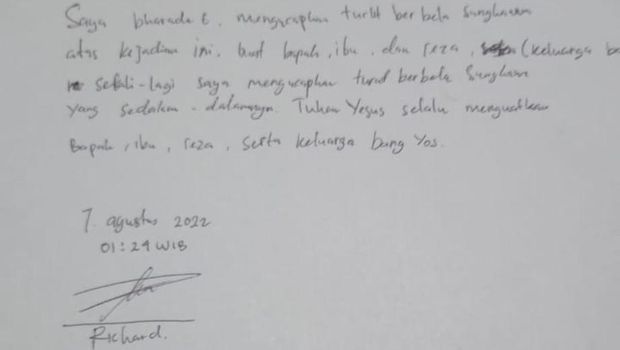 Saya bharada E, mengucapkan turut berbela sungkawa
atas kejadian ini. buat bapak, ibu, dan reza, (keluarga b
sekali-lagi saya mengucapkan turut berbela sungkawa
yang sedalam-dalamnya. Tuhan Yesus selalu menguatkan
Bapak, ibu, reza, serta keluarga bang Yos.
7. agustus 2022
01:24 WIB
Richard.